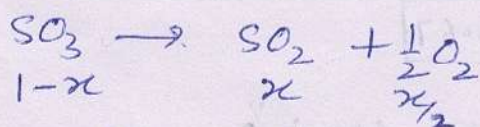 SO₃ → SO₂ + 1/2 O₂
1-x x x/2